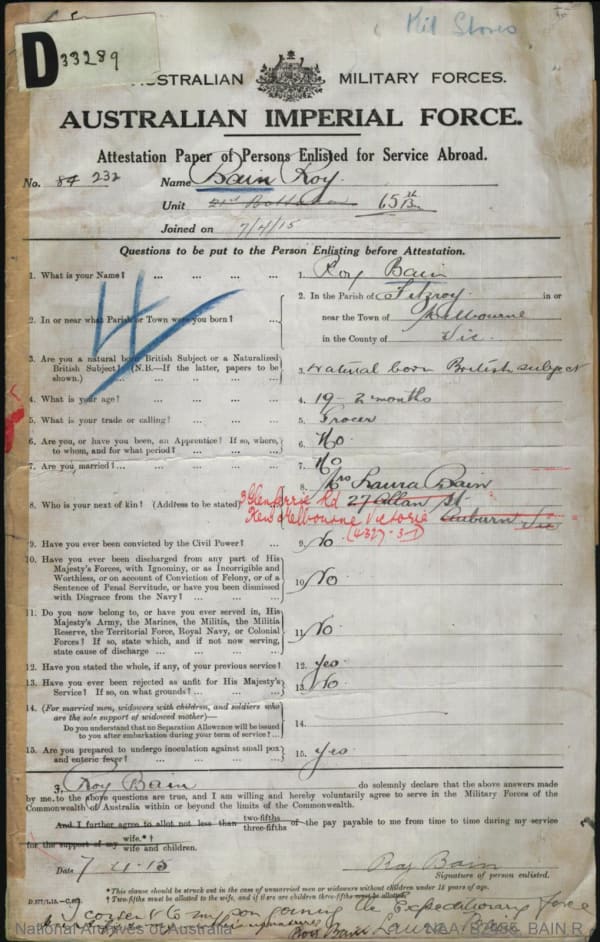 Kit Stores
D 33289
AUSTRALIAN MILITARY FORCES.
AUSTRALIAN IMPERIAL FORCE.
Attestation Paper of Persons Enlisted for Service Abroad.
No. 84 232 Name Bain Roy.
Unit 21st Battalion 65th
Joined on 7/4/15
Questions to be put to the Person Enlisting before Attestation.
1. What is your Name? ... ... ... ... 1. Roy Bain
2. In or near what Parish or Town were you born? ... 2. In the Parish of Fitzroy in or
near the Town of Melbourne
in the County of Vic.
3. Are you a natural born British Subject or a Naturalized
British Subject? (N.B.—If the latter, papers to be
shown.) ... ... ... ... 3. Natural born British subject
4. What is your age? ... ... ... ... 4. 19 - 2 months
5. What is your trade or calling? ... ... ... 5. Grocer
6. Are you, or have you been, an Apprentice? If so, where,
to whom, and for what period? ... ... ... 6. No.
7. Are you married? ... ... ... ... 7. No
8. Who is your next of kin? (Address to be stated) 8. Mrs Laura Bain
Glenferrie Rd 27 Allan St
Kew Melbourne Victoria Auburn Vic
9. Have you ever been convicted by the Civil Power? ... 9. No.
10. Have you ever been discharged from any part of His
Majesty's Forces, with Ignominy, or as Incorrigible and
Worthless, or on account of Conviction of Felony, or of a
Sentence of Penal Servitude, or have you been dismissed
with Disgrace from the Navy? ... ... ... 10. No
11. Do you now belong to, or have you ever served in, His
Majesty's Army, the Marines, the Militia, the Militia
Reserve, the Territorial Force, Royal Navy, or Colonial
Forces? If so, state which, and if not now serving,
state cause of discharge ... ... ... 11. No.
12. Have you stated the whole, if any, of your previous service? 12. yes.
13. Have you ever been rejected as unfit for His Majesty's
Service? If so, on what grounds? ... ... ... 13. No.
14. (For married men, widowers with children, and soldiers who
are the sole support of widowed mother)—
Do you understand that no Separation Allowance will be issued
to you after embarkation during your term of service? ... 14.
15. Are you prepared to undergo inoculation against small pox
and enteric fever? ... ... ... ... 15. yes.
I, Roy Bain do solemnly declare that the above answers made
by me to the above questions are true, and I am willing and hereby voluntarily agree to serve in the Military Forces of the
Commonwealth of Australia within or beyond the limits of the Commonwealth.
And I further agree to allot not less than two-fifths three-fifths of the pay payable to me from time to time during my service
for the support of my wife.*† wife and children.
Date 7.4.15 Roy Bain
Signature of person enlisted.
*This clause should be struck out in the case of unmarried men or widowers without children under 18 years of age.
† Two-fifths must be allotted to the wife, and if there are children three-fifths must be allotted.
I consent to my son joining the Expeditionary Force
Roy Bain Laura Bain
National Archives of Australia NAA: B2455, BAIN R